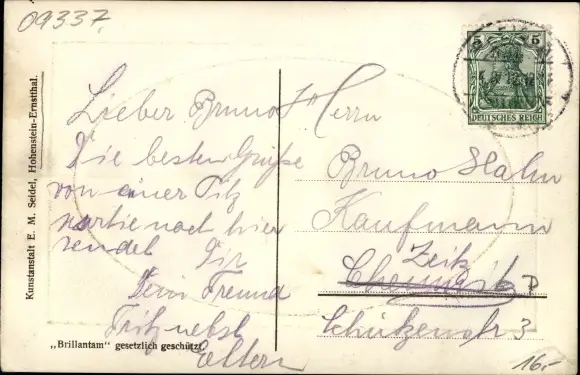 09337
5 5
DEUTSCHES REICH
Kunstanstalt E. M. Seidel, Hohenstein-Ernstthal.
Lieber Bruno!
Die besten Grüße
von einer Pitz
partie nach hier
sendet Dir
Dein Freund
Fritz nebst
Eltern
Herrn
Bruno Hahn
Kaufmann
Zeitz
Chemnitz
Schützenstr 3
„Brillantam" gesetzlich geschützt.
16.-